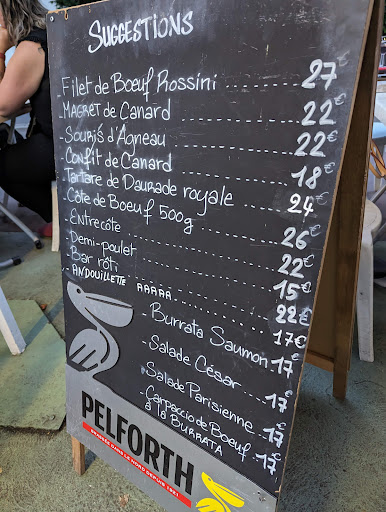 SUGGESTIONS
- Filet de Boeuf Rossini ........ 27€
- MAGRET de Canard ........ 22€
- Souris d'Agneau ........ 22€
- Confit de Canard ........ 18€
- Tartare de Daurade royale ........ 24€
- Côte de Boeuf 500g ........ 26€
- Entrecôte ........ 22€
- Demi-poulet ........ 15€
- Bar rôti ........ 22€
- ANDOUILLETTE AAAAA ........ 17€
- Burrata Saumon 17€
- Salade César ........ 17€
- Salade Parisienne ........ 17€
- Carpaccio de Boeuf
à la BURRATA ........ 17€
PELFORTH